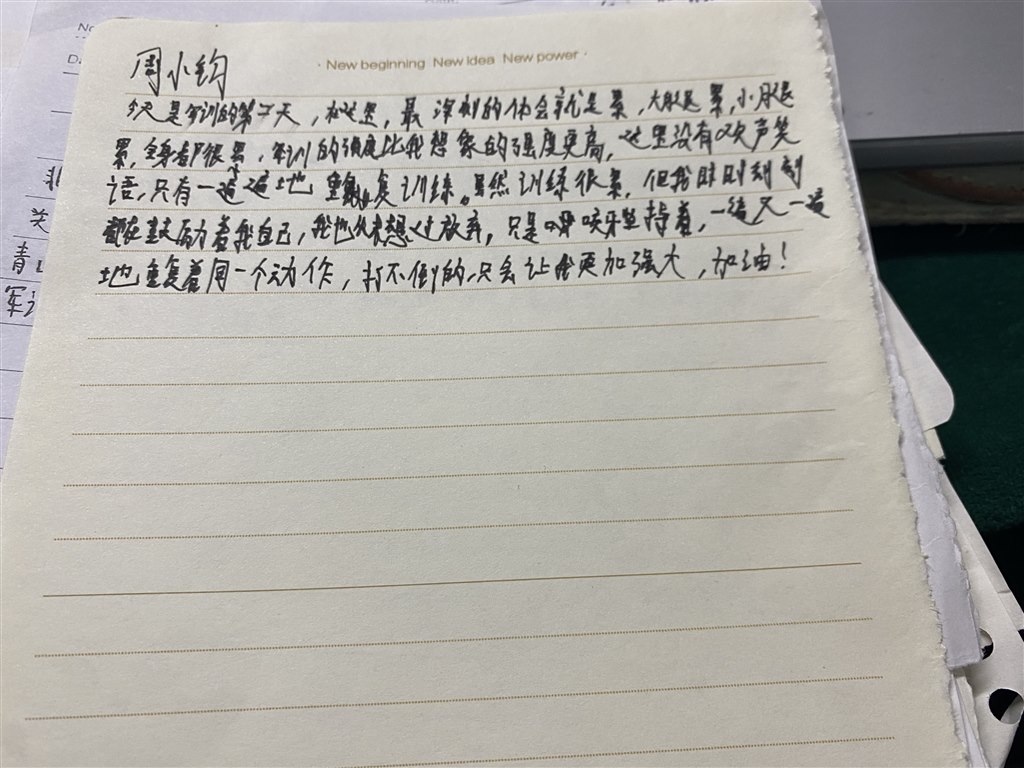 No
Da
周小钧
· New beginning New idea New power ·
今天是军训的第7天，在这里，最深刻的体会就是累，大腿累，小腿
累，全身都很累，军训的强度比我想象的强度更高，这里没有欢声笑
语，只有一遍遍地重复训练。虽然训练很累，但我时时刻刻
都在鼓励着我自己，我也从未想过放弃，只是咬牙坚持着，一遍又一遍
地重复着同一个动作，打不倒的，只会让我更加强大，加油！
青
军